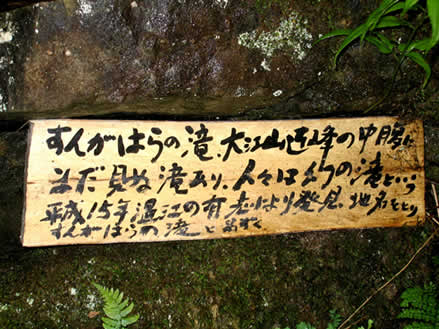 すんがはらの滝、大江山連峰の中腹に
まだ見ぬ滝あり、人々は幻の滝という
平成15年温江の有志により発見、地名をとり
すんがはらの滝と名ずく